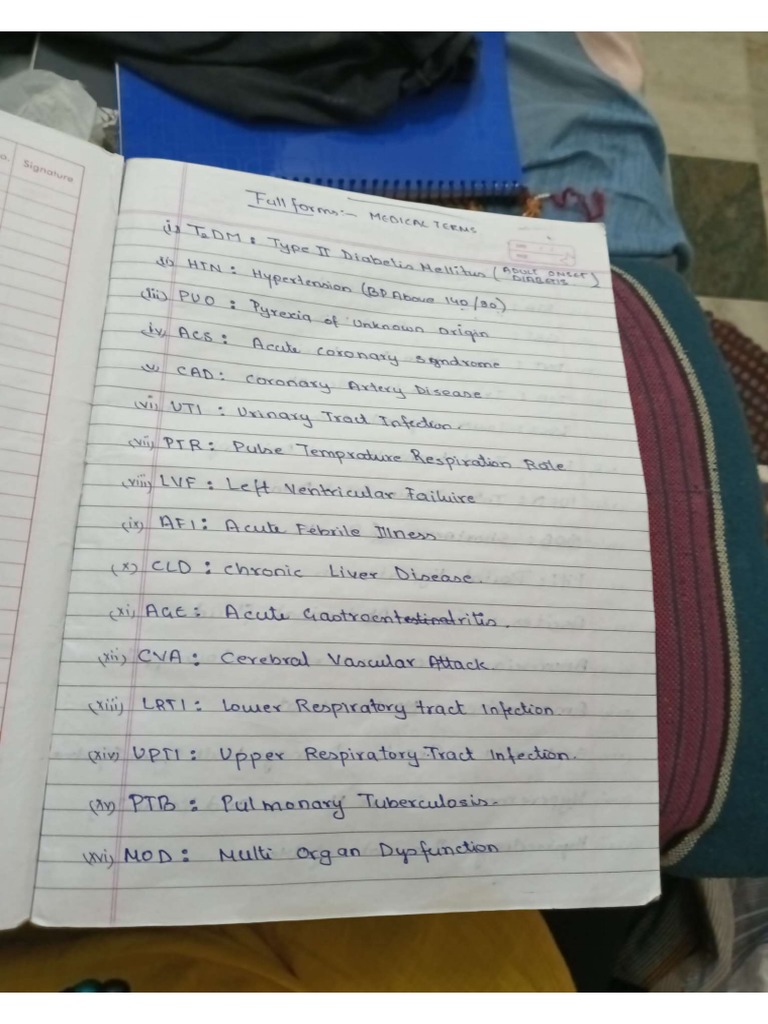 o. Signature
Full forms:- MEDICAL TERMS
i) T2DM : Type II Diabetis Mellitus (ADULT ONSET DIABETIS)
ii) HTN : Hypertension (BP Above 140/90)
(iii) PUO : Pyrexia of Unknown Origin
iv) ACS : Acute Coronary Syndrome
v) CAD : Coronary Artery Disease
(vi) UTI : Urinary Tract Infection.
(vii) PTR : Pulse Temprature Respiration Rate
(viii) LVF : Left Ventricular Failuire
(ix) AFI : Acute Febrile Illness
(x) CLD : Chronic Liver Disease.
(xi) AGE : Acute Gastroentestinalritis.
(xii) CVA : Cerebral Vascular Attack
(xiii) LRTI : Lower Respiratory tract Infection
(xiv) UPTI : Upper Respiratory Tract Infection.
(xv) PTB : Pulmonary Tuberculosis.
(xvi) MOD : Multi Organ Dysfunction